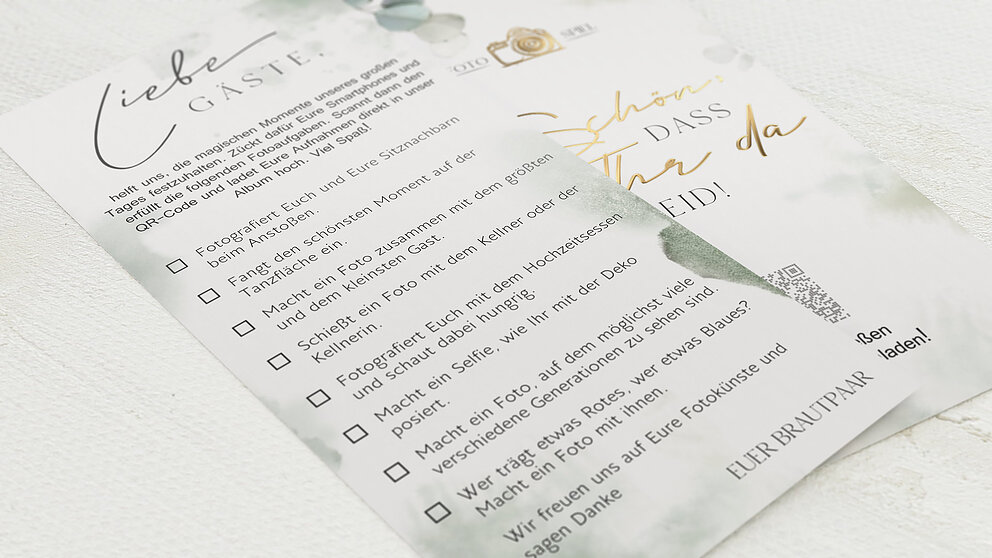 Liebe
GÄSTE,
helft uns, die magischen Momente unseres großen
Tages festzuhalten. Zückt dafür Eure Smartphones und
erfüllt die folgenden Fotoaufgaben. Scannt dann den
QR-Code und ladet Eure Aufnahmen direkt in unser
Album hoch. Viel Spaß!
Fotografiert Euch und Eure Sitznachbarn
beim Anstoßen.
Fangt den schönsten Moment auf der
Tanzfläche ein.
Macht ein Foto zusammen mit dem größten
und dem kleinsten Gast.
Schießt ein Foto mit dem Kellner oder der
Kellnerin.
Fotografiert Euch mit dem Hochzeitsessen
und schaut dabei hungrig.
Macht ein Selfie, wie Ihr mit der Deko
posiert.
Macht ein Foto, auf dem möglichst viele
verschiedene Generationen zu sehen sind.
Wer trägt etwas Rotes, wer etwas Blaues?
Macht ein Foto mit ihnen.
Wir freuen uns auf Eure Fotokünste und
sagen Danke
EUER BRAUTPAAR
FOTO SPIEL
Schön,
DASS
Ihr da
EID!
ßen
laden!